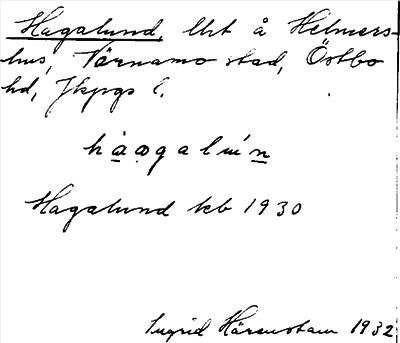 Hagalund, lht å Helmers-
hus, Värnamo stad, Östbo
hd, Jkpgs l.
hàagalún
Hagalund kb 1930
Ingrid Härenstam 1932